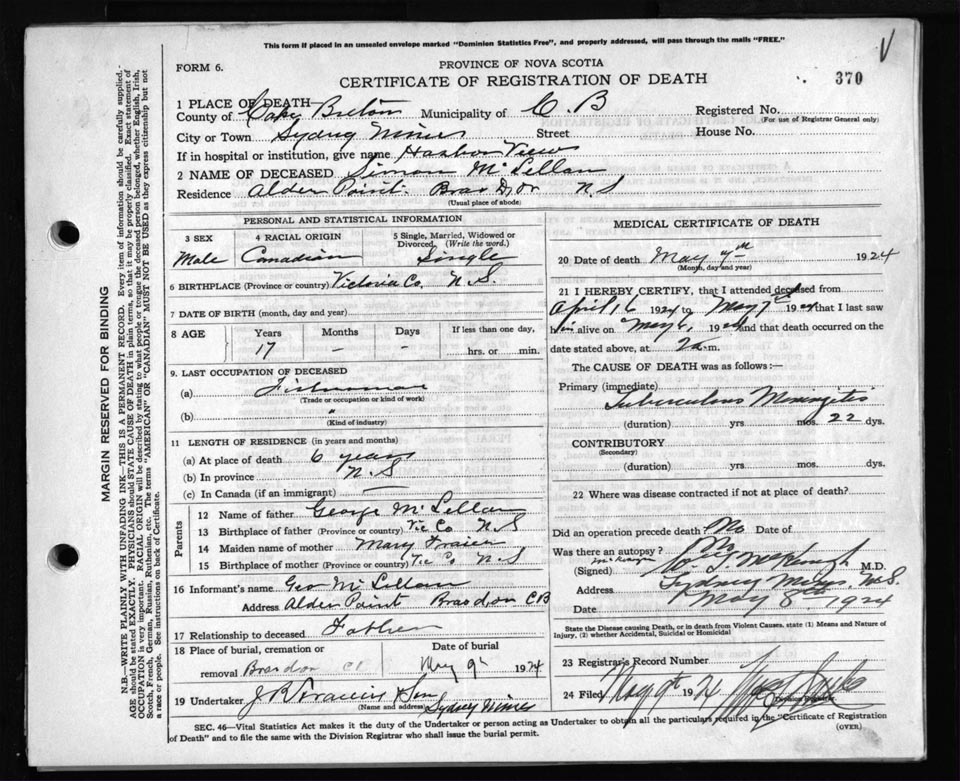 This form if placed in an unsealed envelope marked "Dominion Statistics Free", and properly addressed, will pass through the mails "FREE."
FORM 6.
PROVINCE OF NOVA SCOTIA
CERTIFICATE OF REGISTRATION OF DEATH
370
1 PLACE OF DEATH
County of Cape Breton Municipality of C. B Registered No.
(For use of Registrar General only)
City or Town Sydney Mines Street House No.
If in hospital or institution, give name Harbor View
2 NAME OF DECEASED Simon McLellan
Residence Alder Point Bras D'or N S
(Usual place of abode)
PERSONAL AND STATISTICAL INFORMATION
3 SEX 4 RACIAL ORIGIN 5 Single, Married, Widowed or Divorced, (Write the word.)
Male Canadian Single
6 BIRTHPLACE (Province or country) Victoria Co. N. S.
7 DATE OF BIRTH (month, day and year)
8 AGE Years Months Days If less than one day,
17 – – hrs. or min.
9. LAST OCCUPATION OF DECEASED
(a) Fisherman
(Trade or occupation or kind of work)
(b) "
(Kind of industry)
11 LENGTH OF RESIDENCE (in years and months)
(a) At place of death 6 years
(b) In province N. S
(c) In Canada (if an immigrant) —
Parents
12 Name of father George McLellan
13 Birthplace of father (Province or country) Vic Co N. S
14 Maiden name of mother Mary Fraser
15 Birthplace of mother (Province or country) Vic Co N. S
16 Informant's name Geo McLellan
Address Alder Point Brasdor CB
17 Relationship to deceased Father
18 Place of burial, cremation or removal Brasdor CB
Date of burial May 9th 1924
19 Undertaker J R Francis & Son
(Name and address) Sydney Mines
MEDICAL CERTIFICATE OF DEATH
20 Date of death May 7th 1924
(Month, day and year)
21 I HEREBY CERTIFY, that I attended deceased from
April 16 1924 to May 7th 1924 that I last saw
him alive on May 6, 1924 and that death occurred on the
date stated above, at 2 a.m.
The CAUSE OF DEATH was as follows:—
Primary (immediate) Tuberculous Meningitis
(duration) yrs mos. 22 dys.
CONTRIBUTORY
(Secondary)
(duration) yrs. mos. dys.
22 Where was disease contracted if not at place of death?
Did an operation precede death No Date of
Was there an autopsy? No
(Signed) M.D.
Address Sydney Mines N.S.
Date May 8th 1924
State the Disease causing Death, or in death from Violent Causes, state (1) Means and Nature of Injury, (2) whether Accidental, Suicidal or Homicidal
23 Registrar's Record Number
24 Filed May 9th 1924
SEC. 46—Vital Statistics Act makes it the duty of the Undertaker or person acting as Undertaker to obtain all the particulars required in the "Certificate of Registration
of Death" and to file the same with the Division Registrar who shall issue the burial permit.
(OVER)
MARGIN RESERVED FOR BINDING
N.B.—WRITE PLAINLY WITH UNFADING INK—THIS IS A PERMANENT RECORD. Every item of information should be carefully supplied.
AGE should be stated EXACTLY. PHYSICIANS should STATE CAUSE OF DEATH in plain terms, so that it may be properly classified. Exact statement of
OCCUPATION is very important. RACIAL ORIGIN will be described by stating to what people or tongue the deceased person belonged, whether English, Irish,
Scotch, French, German, Russian, Ruthenian, etc. The terms "AMERICAN" OR "CANADIAN" MUST NOT BE USED as they express citizenship but not
a race or people. See instructions on back of Certificate.